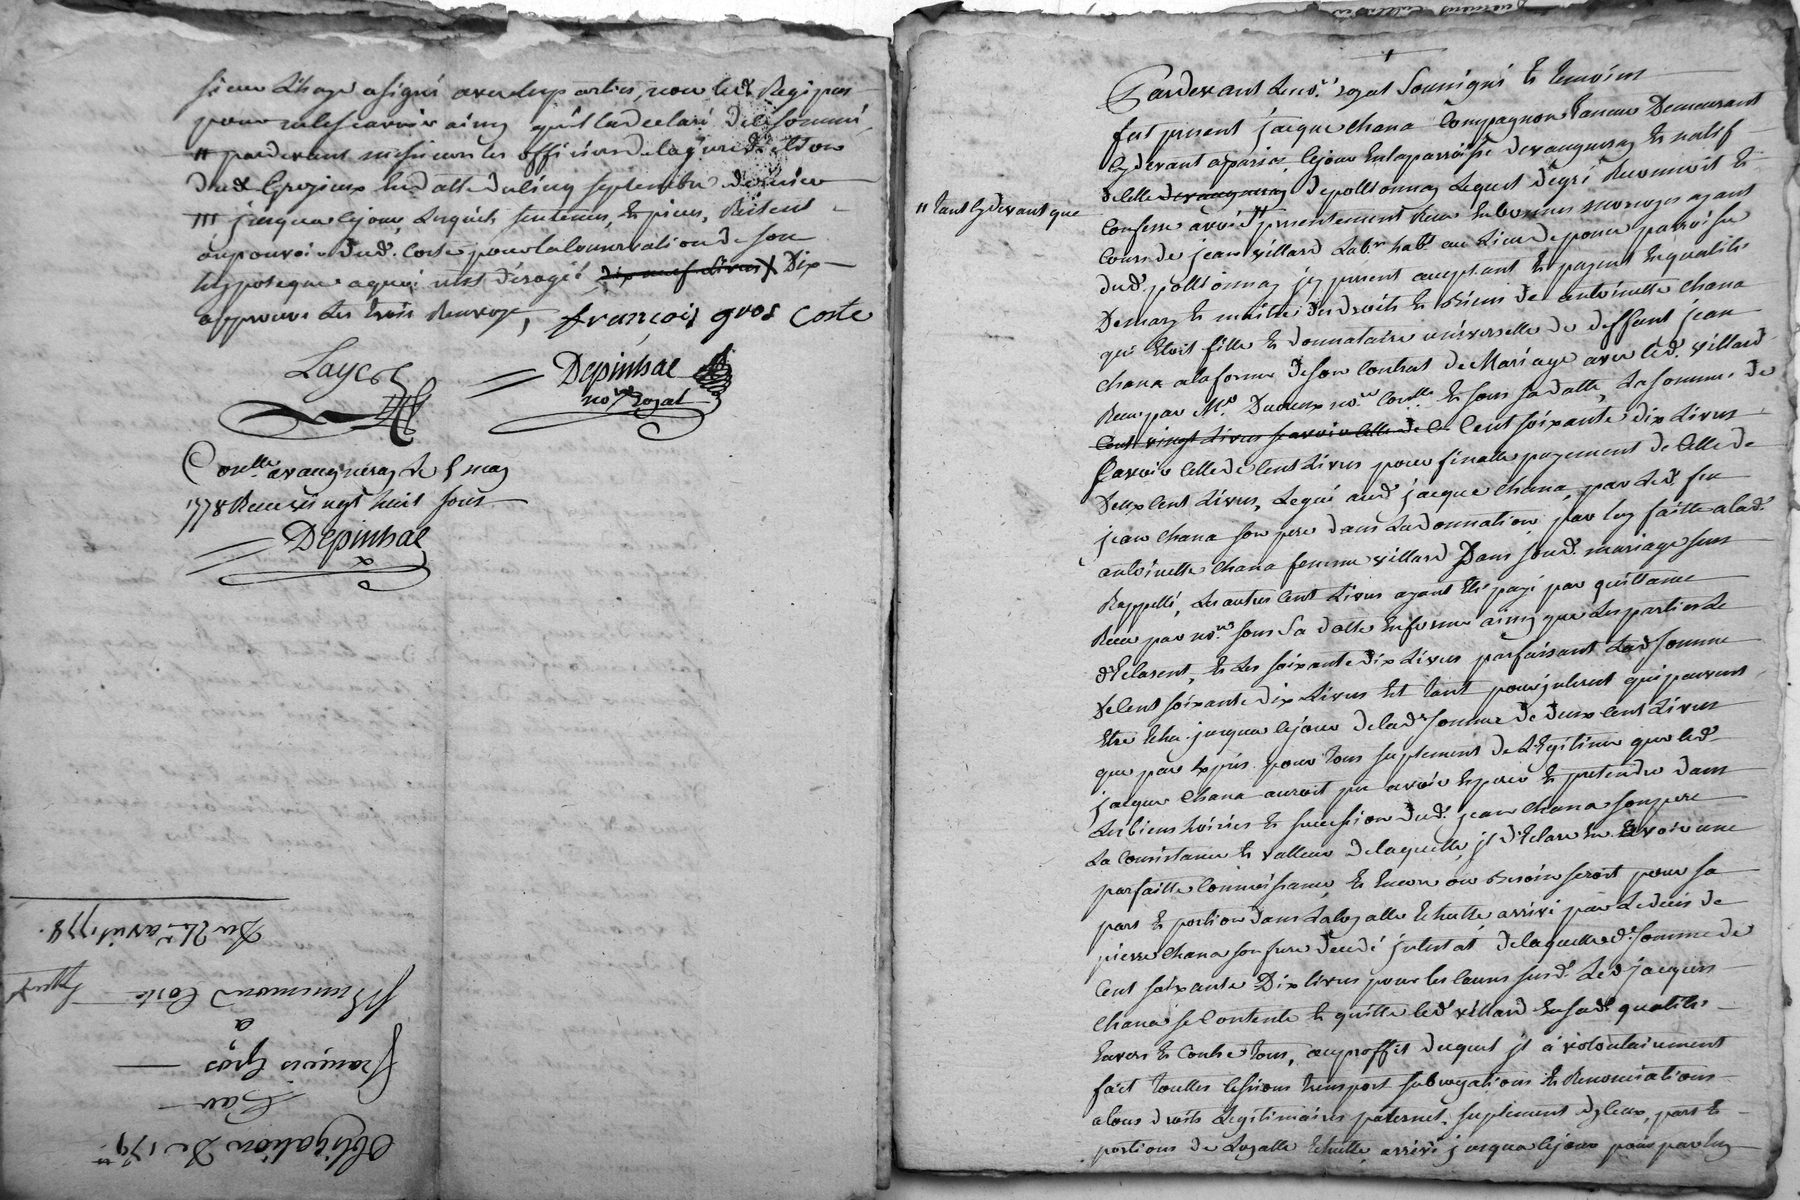 sieur Laye a signé avec les parties, non led. Regipas
pour ne le scavoir ainsy qu'il la declaré de ce sommé,
" pardevant messieurs les officiers de la jurediction
dud. Grezieux en datte du cinq septembre dernier
''' jusqua ce jour, lesquels sentences, et pieces, Restent
au pouvoir dud. Coste pour la conservation de son
hypoteque a quoi n'est dérogé dix neuf livres X Dix
approuvé les trois Renvoys, françois gros Coste
Laye
Depinhac
no.re Royal
Con.lle a vaugneray le 5 may
1778 Receu vingt huit sous
Depinhac
Du 26e avril 1778.
Obligation De 179tt
Par
François Gros
a
Coste
Pardevant le no.re royal soussigné et temoins
fut present jacque Chana Compagnon Taneur Demeurant
cydevant a paris, ce jour en la parroisse de vaugneray et natif
de celle de vaugneray de pollionnay lequel de gré Reconnoit et
" tant cydevant que
Confesse avoir " presentement Receu en bonnes monoyes ayant
Cours de jean villard Lab.r hab.t au Lieu de poueu parroisse
dud. pollionnay jcy present acceptant et payant en qualité
De mary et maitre des droits et Biens de antoinette Chana
qui Etoit fille et donnataire universelle de deffunt jean
Chana a la forme de son Contrat de Mariage avec led. villard
Receu par Me no.re Con.lle et sous sa datte, La somme de
Cent vingt Livres scavoir celle de Cent soixante dix Livres
scavoir Celle de Cent Livres pour finalle payement de Celle de
Deux Cent Livres, Legué aud. jacque Chana par led. feu
jean Chana son pere dans La donnation par luy faitte a lad.
antoinette Chana femme villard Dans sond. mariage sus
Rappellé, Les autres Cent Livres ayant Eté payé par quittance
Receu par no.re sous sa datte En forme ainsy que Les parties Le
déClarent, et Les soixante dix Livres parfaisant Lad. somme
de Cent soixante dix Livres Est tant pour jnterest qui peuvent
Etre Echu jusqua ce jour de lad. somme de deux Cent Livres
que par Exprès pour tous suplement de Légitime que led.
jacque Chana auroit pu avoir Esperer et pretendre dans
Les biens hoiries et succession dud. jean Chana son pere
La Consistance et valleur de laquelle, jl déClare En Avoir une
parfaitte Connoissance, et Encore ou Besoin seroit pour sa
part et portion dans La legalle Echutte arrivé par Le deces de
pierre Chana son frere decedé jntestat de laquelle d. somme de
Cent soixante Dix livres pour les Causes susd. Led. jacques
Chana se Contente et quitte led. villard En sad. qualité
Envers et Contre tous, au proffit duquel jl a volontairement
fait touttes Cessions transport subrogations et Renonciations
a tous droits Legitimaires paternel, suplement dyceux, part et
portions de Legalle Echutte arrivé jusqua Ce jour pour par luy